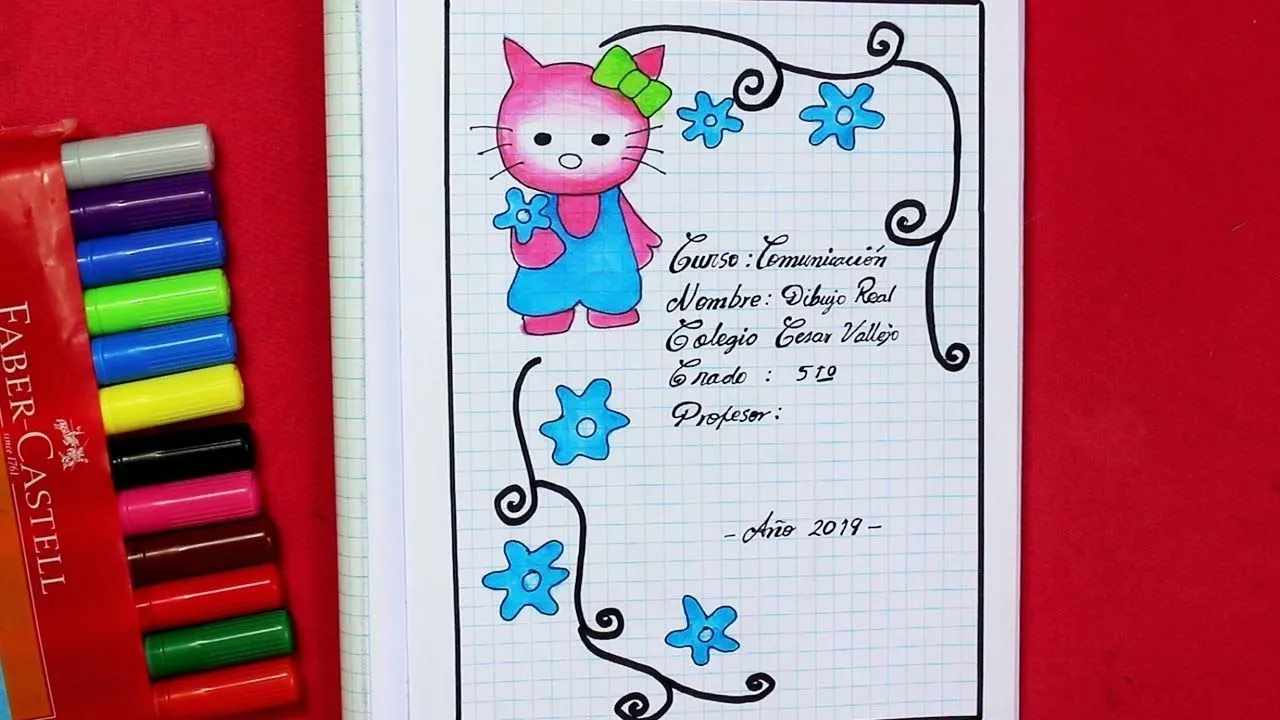 Curso : Comunicación
Nombre : Dibujo Real
Colegio Cesar Vallejo
Grado : 5to
Profesor :
- Año 2019 -
FABER-CASTELL
since 1761